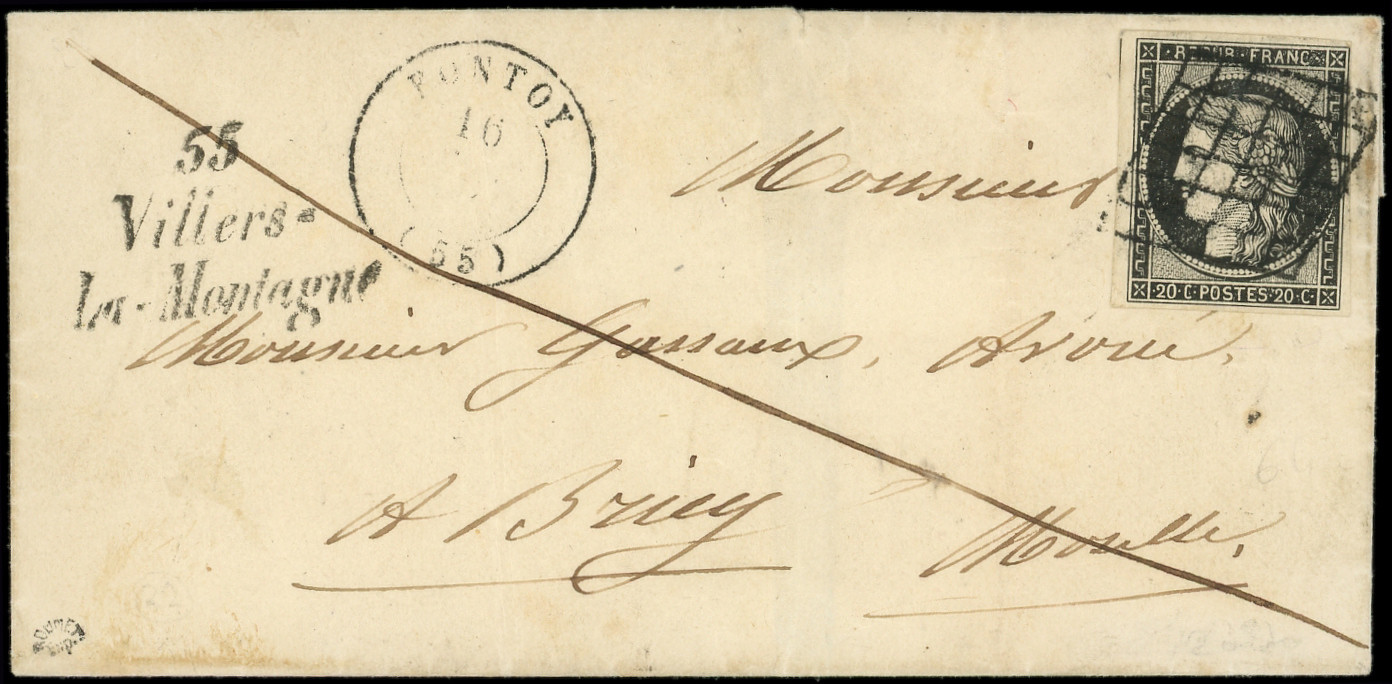 REPUB·FRANC
FONTOY
16
(55)
55
Villers-
La-Montagne
Monsieur
20·C·POSTES·20·C·
Monsieur Gossaux, Avoué,
A Briey
Moselle.